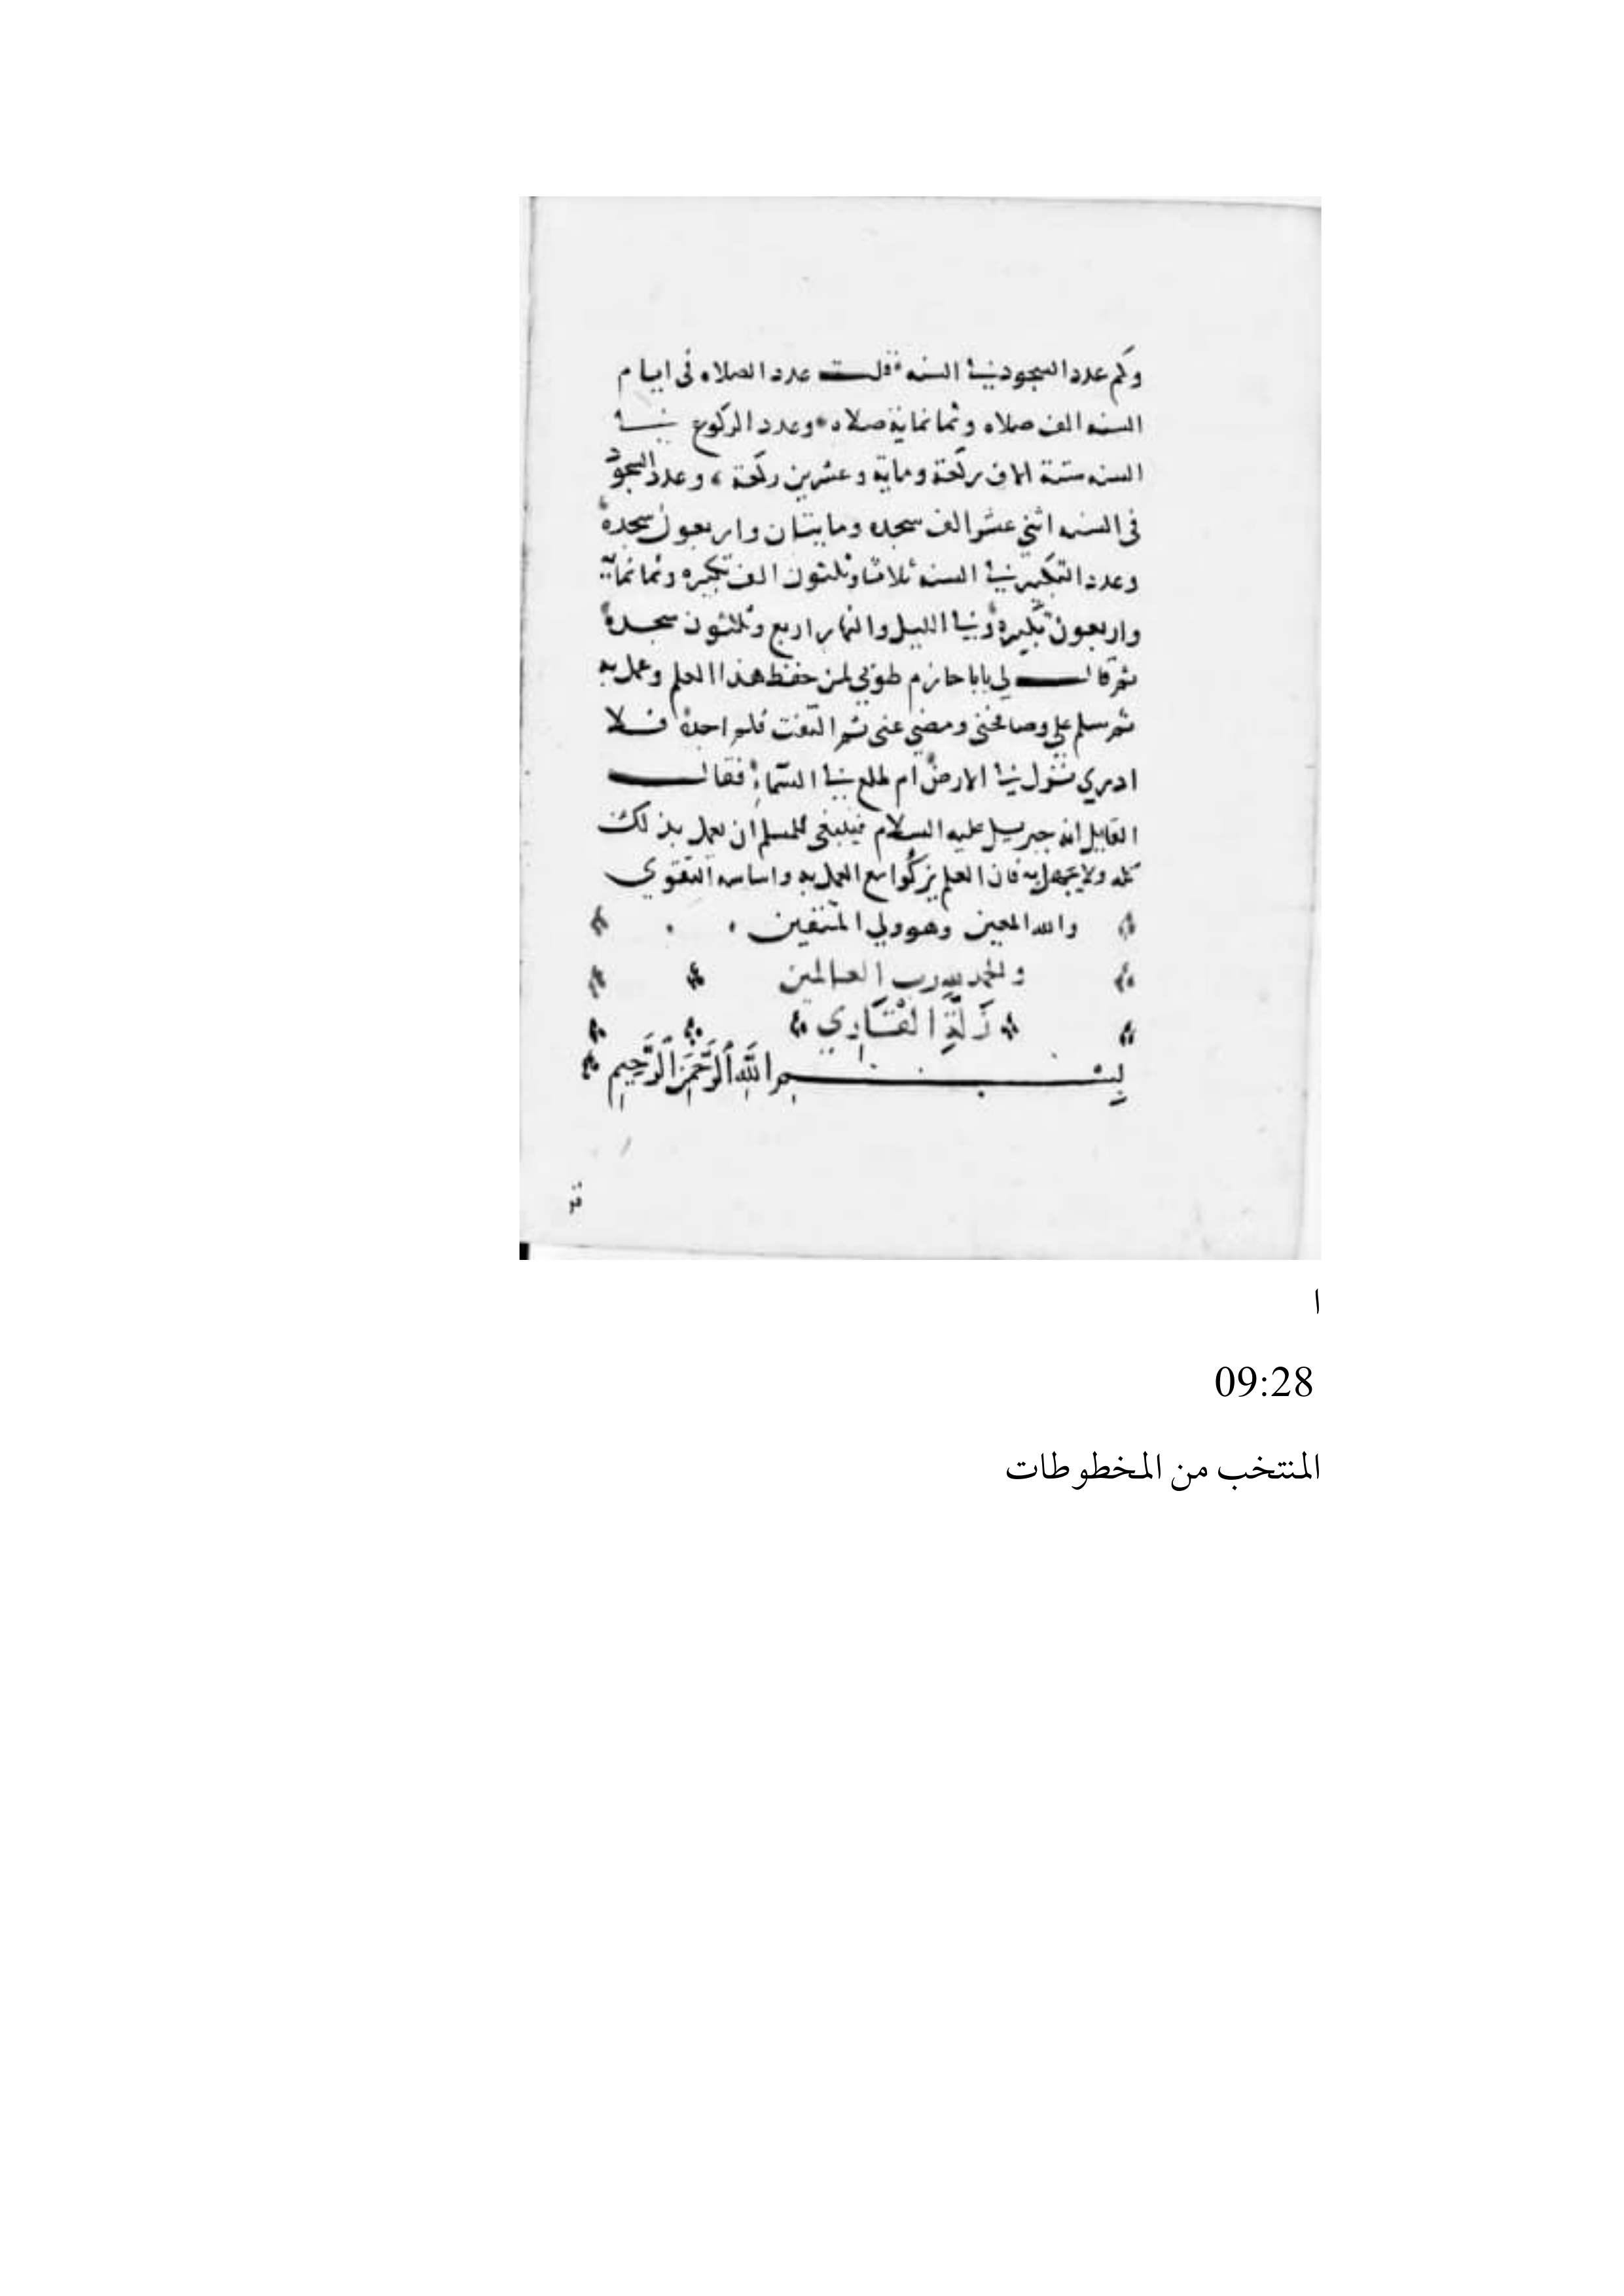 وكم عدد السجود في السنه فقلت عدد الصلاه في ايام
السنه الف صلاه وثمانماية صلاه وعدد الركوع في
السنه ستة الاف ركعة وماية وعشرين ركعة، وعدد السجود
في السنه اثني عشر الف سجده ومايتان واربعون سجدة
وعدد التكبير في السنه ثلاثا وثلثون الف تكبيره وثمانماية
واربعون تكبيرة وفي الليل والنهار اربع وثلثون سجدة
ثم قال لي يابا حازم طوبي لمن حفظ هذا العلم وعمل به
ثم سلم علي وصافحني ومضي عني ثم التفت فلم اجده فلا
ادري نزل في الارض ام طلع في السماء فقال
القايل انه جبريل عليه السلام فينبغي للمسلم ان يعمل بذلك
كله ولا يجهل به فان العلم يزكوا مع العمل به واساسه التقوي
والله المعين وهو ولي المتقين
والحمد لله رب العالمين
زَلَّةِ القَاري
بِسْمِ اللَّهِ الرَّحْمَنِ الرَّحِيمِ
ا
09:28
المنتخب من المخطوطات